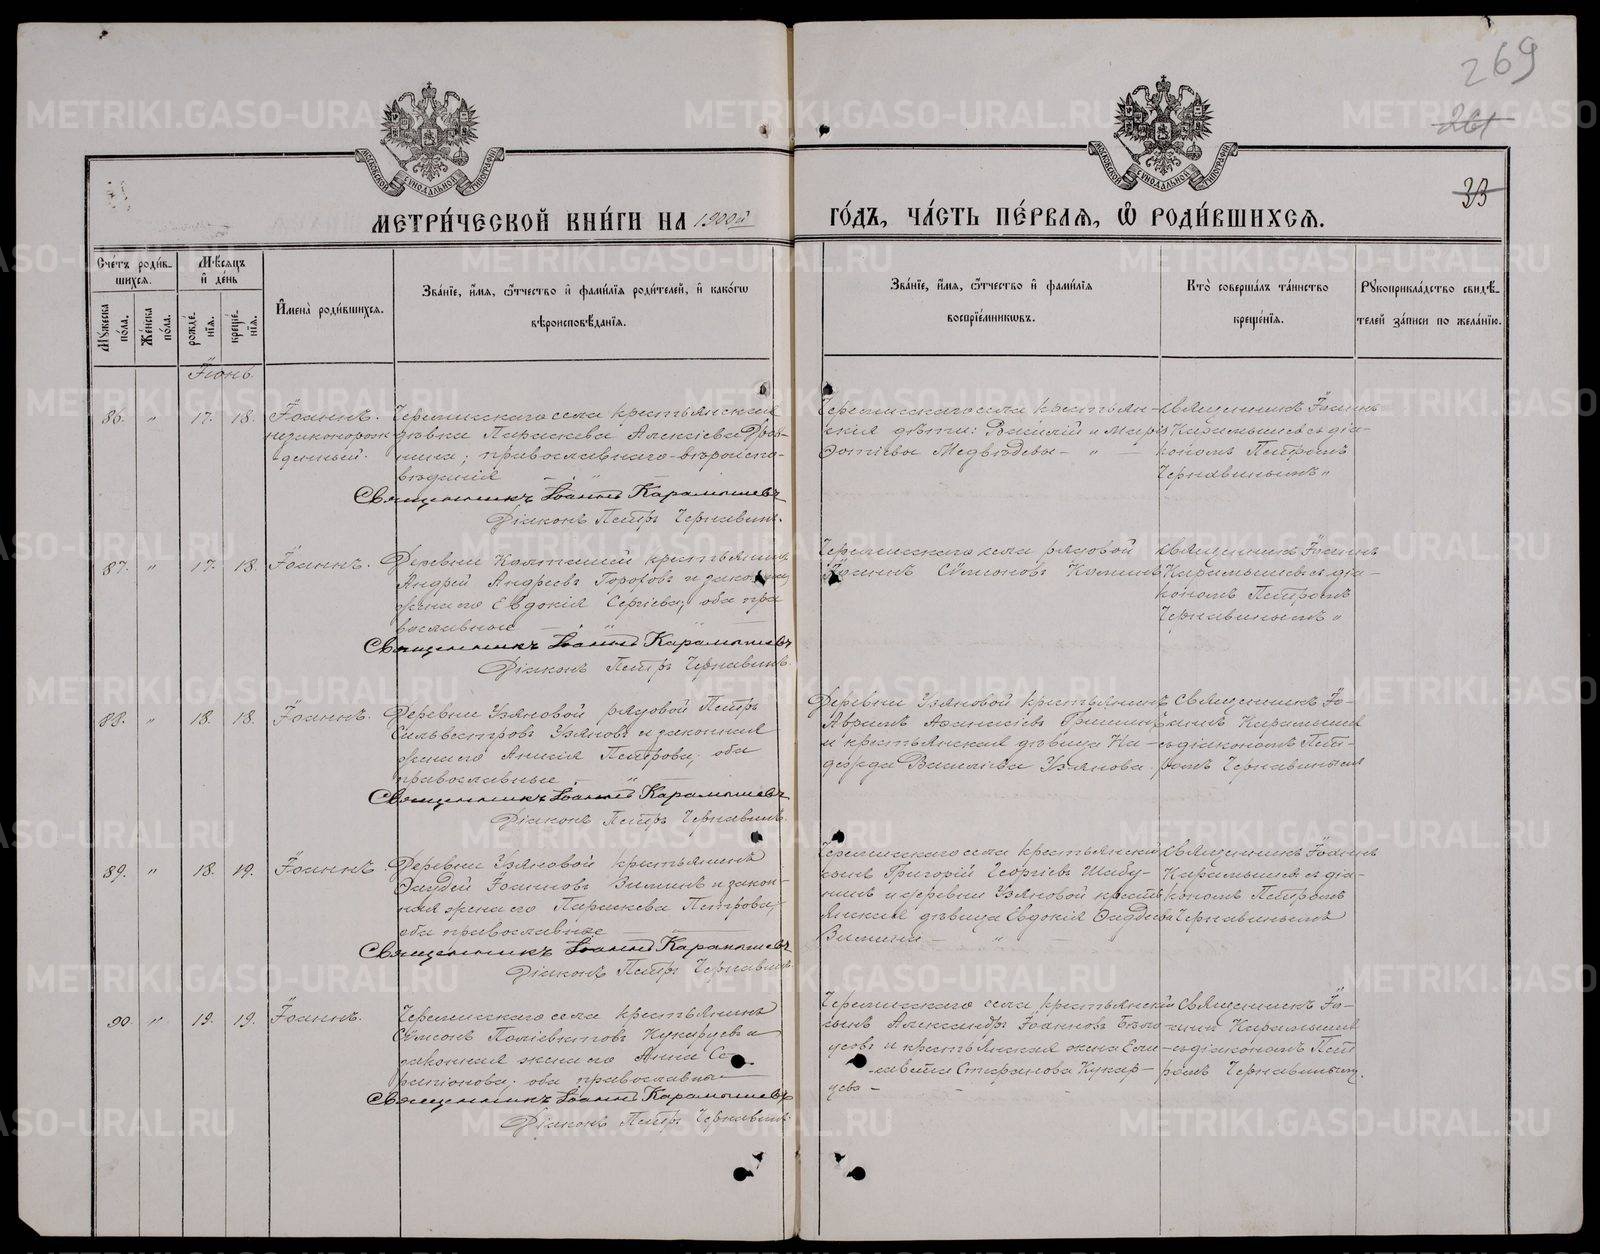 269
261
33
МЕТРИ́ЧЕСКОЙ КНИ́ГИ НА 1900й ГО́ДЪ, ЧА́СТЬ ПЕ́РВАѦ, Ѡ҆ РОДИ́ВШИХСѦ.
Сче́тъ роди́в-
шихсѧ.
Мꙋ́жеска по́ла.
Же́нска по́ла.
Мѣ́сѧцъ и҆ де́нь
рожде́-нїѧ.
креще́-нїѧ.
И҆мена̀ роди́вшихсѧ.
Зва́нїе, и҆́мѧ, ѻ҆́тчество и҆ фами́лїѧ роди́телей, и҆ како́гѡ
вѣроисповѣ́данїѧ.
Зва́нїе, и҆́мѧ, ѻ҆́тчество и҆ фами́лїѧ
воспрїе́мникѡвъ.
Кто̀ соверша́лъ та́инство
креще́нїѧ.
Рꙋкоприкла́дство свидѣ́-
телей за́писи по жела́нїю.
Іюнь
86. " 17. 18. Іоаннъ.
незаконорож-
денный.
Черемисскаго села крестьянская
дѣвка Параскева Алексіева
православнаго вѣроиспо-
вѣданія
Священникъ Іоаннъ Карамышевъ
Діаконъ Петръ Чернавинъ.
Черемисскаго села крестьян-
скія дѣти: Василій и Марія
Фотіевы Медвѣдевы — " —
Священникъ Іоаннъ
Карамышевъ съ діа-
кономъ Петромъ
Чернавинымъ "
87. " 17. 18. Іоаннъ.
Деревни крестьянинъ
Андрей Андреевъ и законная
жена его Евдокія Сергіева; оба пра
вославные
Священникъ Іоаннъ Карамышевъ
Діаконъ Петръ Чернавинъ.
Черемисскаго села рядовой
Іоаннъ Сѵмеоновъ
Священникъ Іоаннъ
Карамышевъ съ діа-
кономъ Петромъ
Чернавинымъ "
88. " 18. 18. Іоаннъ.
Деревни Узяновой рядовой Петръ
Сильвестровъ Узяновъ и законная
жена его Анисія Петрова; оба
православные — " —
Священникъ Іоаннъ Карамышевъ
Діаконъ Петръ Чернавинъ.
Деревни Узяновой крестьянинъ
Аѳанасіевъ
и крестьянская дѣвица На-
дежда Василіева Узянова.
Священникъ Іо-
аннъ Карамышевъ
съ діакономъ Пет-
ромъ Чернавинымъ
89. " 18. 19. Іоаннъ.
Деревни Узяновой крестьянинъ
Ѳаддей Іоанновъ Зиминъ и закон-
ная жена его Параскева Петрова;
оба православные
Священникъ Іоаннъ Карамышевъ
Діаконъ Петръ Чернавинъ.
Черемисскаго села крестьянскій
сынъ Григорій Георгіевъ Шабу-
нинъ и деревни Узяновой кресть
янская дѣвица Евдокія Ѳаддеева
Зимина — " —
Священникъ Іоаннъ
Карамышевъ съ діа-
кономъ Петромъ
Чернавинымъ
90. " 19. 19. Іоаннъ.
Черемисскаго села крестьянинъ
Сѵмеонъ Поліевктовъ Кукарцевъ и
законная жена его Анна Се-
рапіонова; оба православные
Священникъ Іоаннъ Карамышевъ
Діаконъ Петръ Чернавинъ.
Черемисскаго села крестьянскій
сынъ Александръ Іоанновъ Бѣло
усовъ и крестьянская жена Ели-
савета Стефанова Кукар-
цева —
Священникъ Іо-
аннъ Карамышевъ
съ діакономъ Пет
ромъ Чернавинымъ.